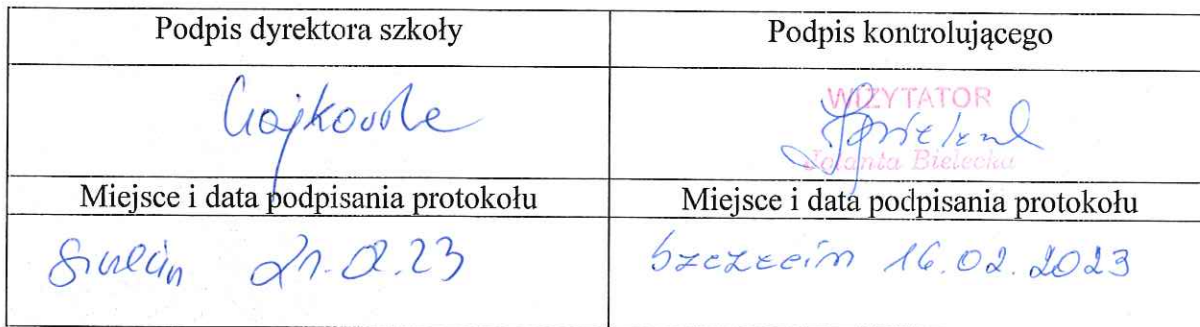 Podpis dyrektora szkoły
Podpis kontrolującego
WIZYTATOR
Jolanta Bielecka
Miejsce i data podpisania protokołu
Miejsce i data podpisania protokołu
21.02.23
Szczecin 16.02.2023